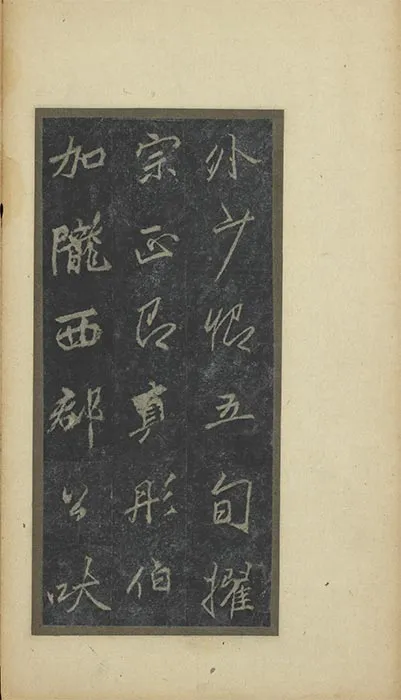 外少卿五旬擢
宗正即真彤伯
加隴西郡公吠